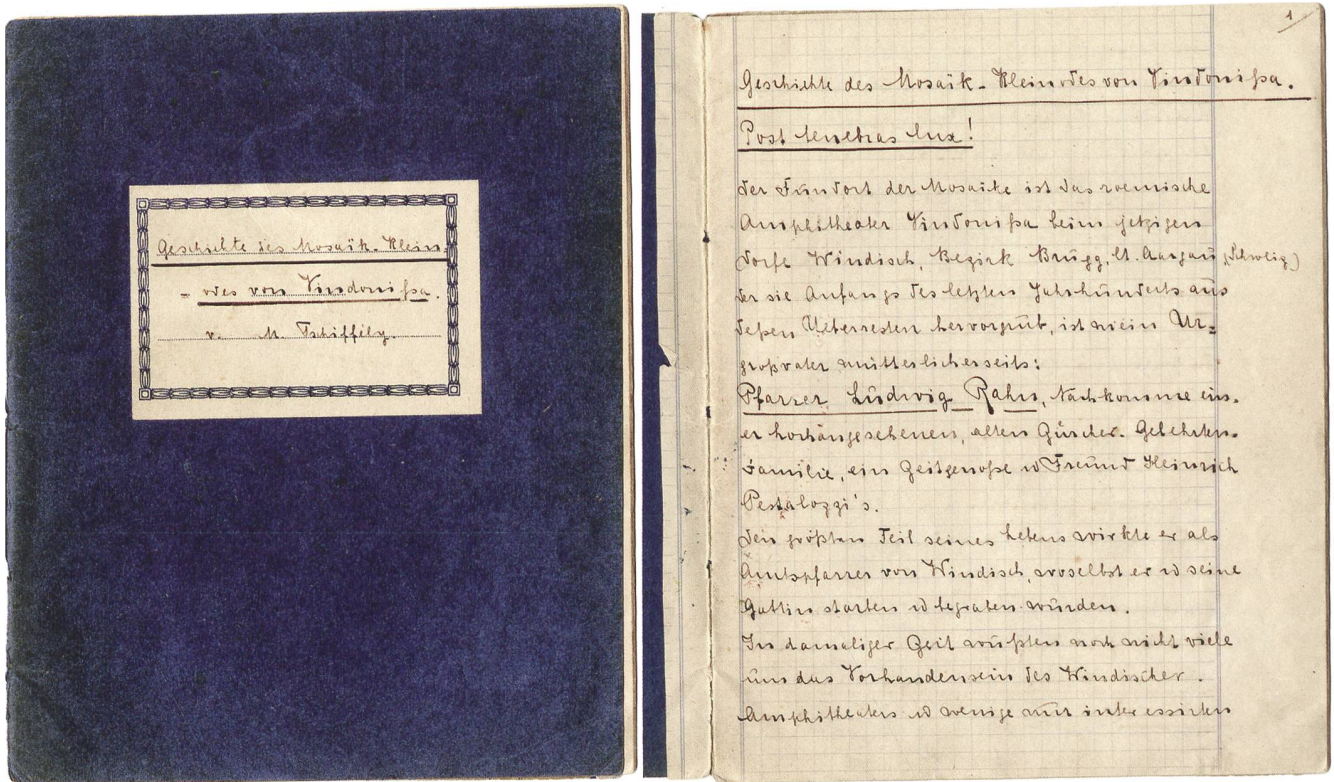 Geschichte des Mosaïk-Klein
- odes von Vindonißa.
v. M. Tschiffely.
1
Geschichte des Mosaïk-Kleinodes von Vindonißa.
Post tenebras lux!
Der Fundort der Mosaike ist das roemische
Amphitheater Vindonißa beim jetzigen
Dorfe Windisch, Bezirk Brugg, Ct. Aargau, (Schweiz)
Der sie Anfangs des letzten Jahrhunderts aus
deßen Ueberresten hervorgrub, ist mein Ur=
großvater mütterlicherseits:
Pfarrer Ludwig Rahn, Nachkomme ein-
er hochangesehenen, alten Zürcher-Gelehrten-
Familie, ein Zeitgenoße u Freund Heinrich
Pestalozzi's.
Den größten Teil seines Lebens wirkte er als
Amtspfarrer von Windisch, woselbst er u seine
Gattin starben u begraben wurden.
In damaliger Zeit wußten noch nicht viele
um das Vorhandensein des Windischer-
Amphitheaters u wenige nur interessirten